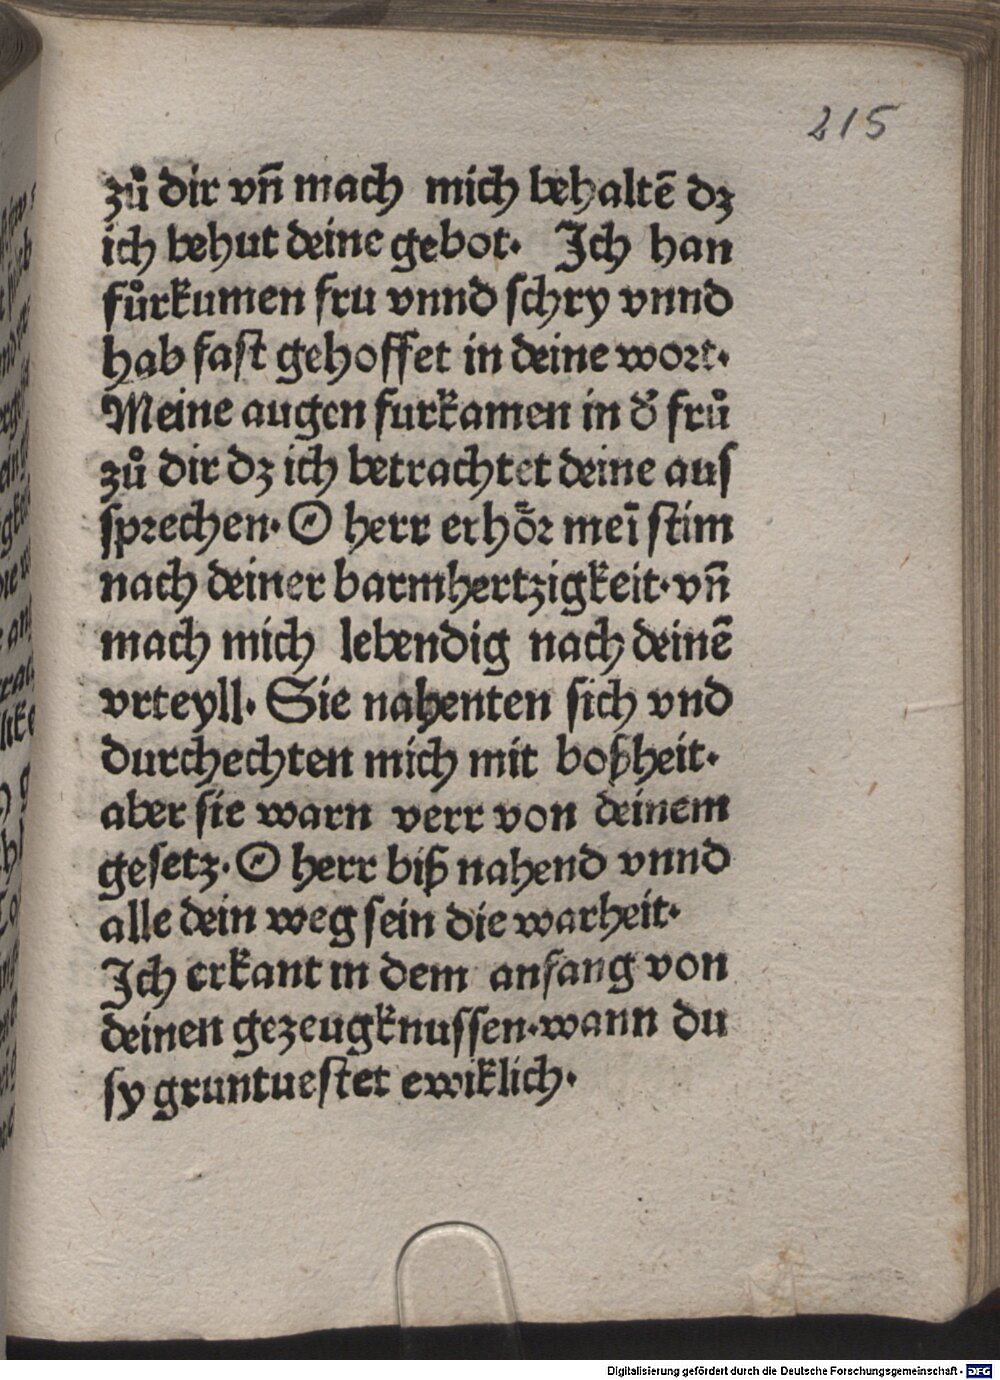 215
zů dir vn̄ mach mich behaltē dz
ich behut deine gebot. Ich han
fůrkumen fru vnnd schry vnnd
hab fast gehoffet in deine wort.
Meine augen furkamen in d̕ frů
zů dir dz ich betrachtet deine aus
sprechen. O herr erhőr meī stim
nach deiner barmhertzigkeit. vn̄
mach mich lebendig nach deinē
vrteyll. Sie nahenten sich vnd
durchechten mich mit boßheit.
aber sie warn verr von deinem
gesetz. O herr biß nahend vnnd
alle dein weg sein die warheit.
Ich erkant in dem anfang von
deinen gezeugknussen. wann du
sy gruntuestet ewiklich.
Digitalisierung gefördert durch die Deutsche Forschungsgemeinschaft - DFG